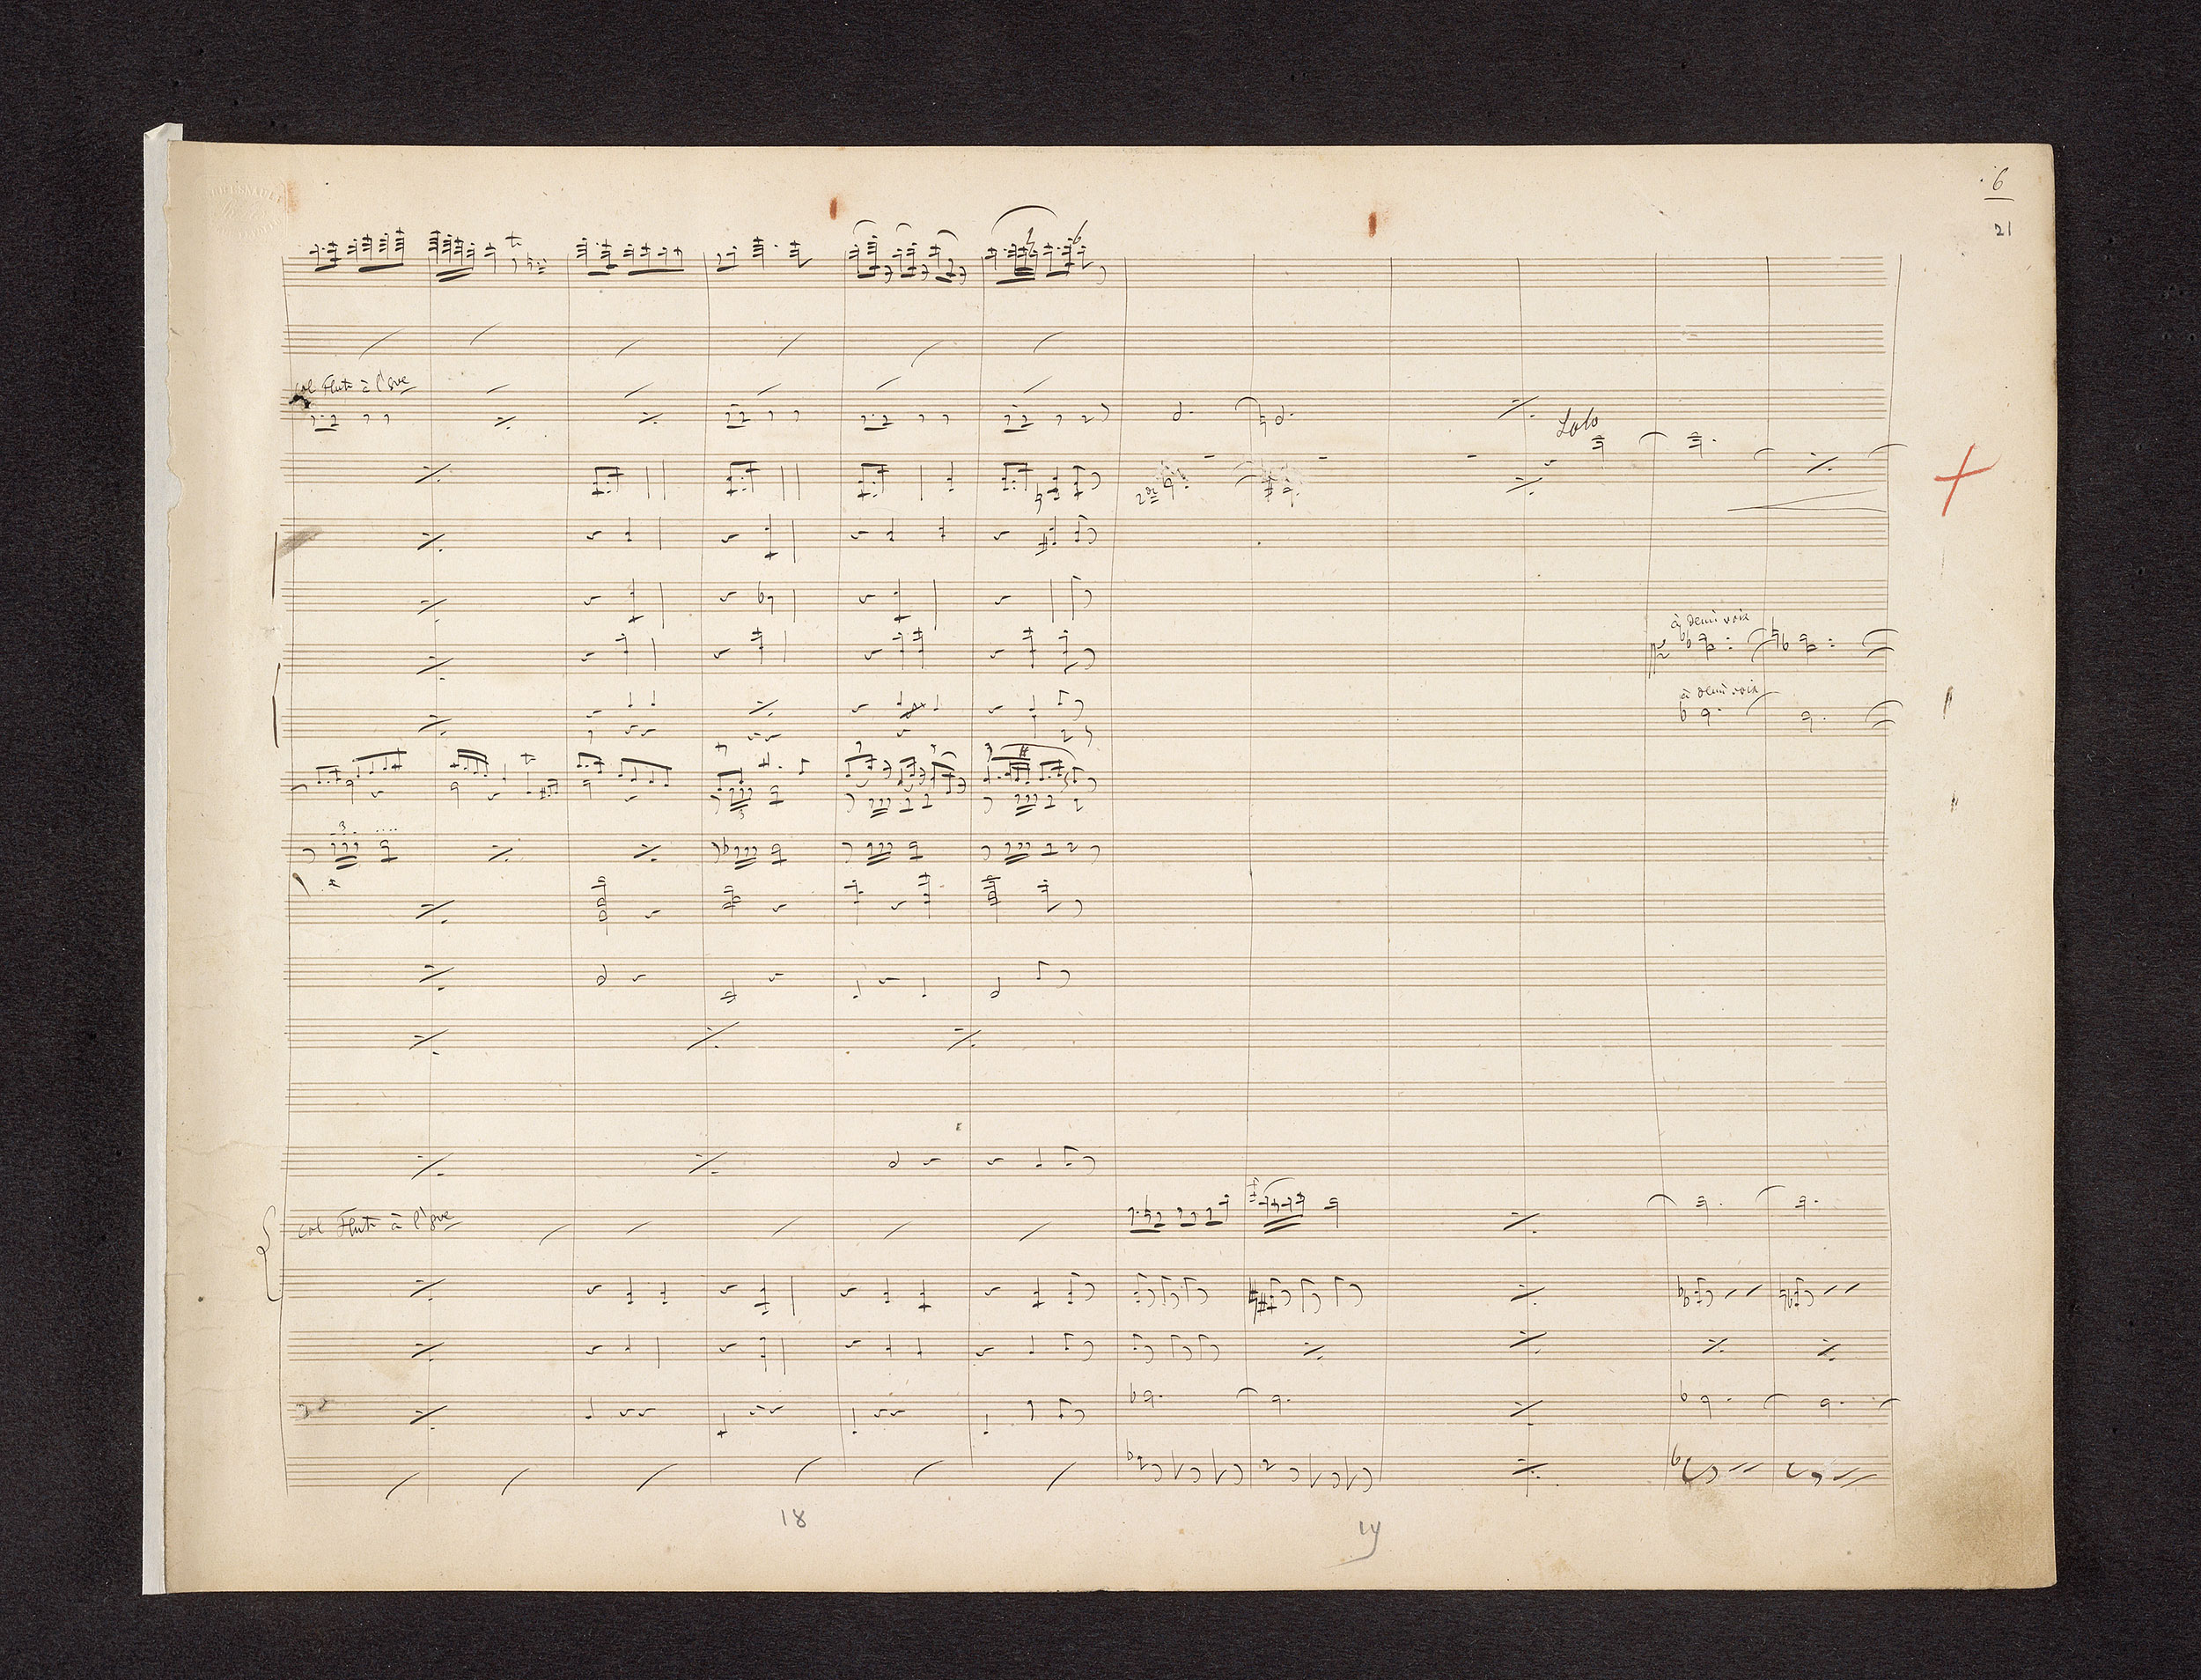 6
21
col Flute à l'8ve
Solo
2de
à demi voix
à demi voix
3
3
col Flute à l'8ve
18
19